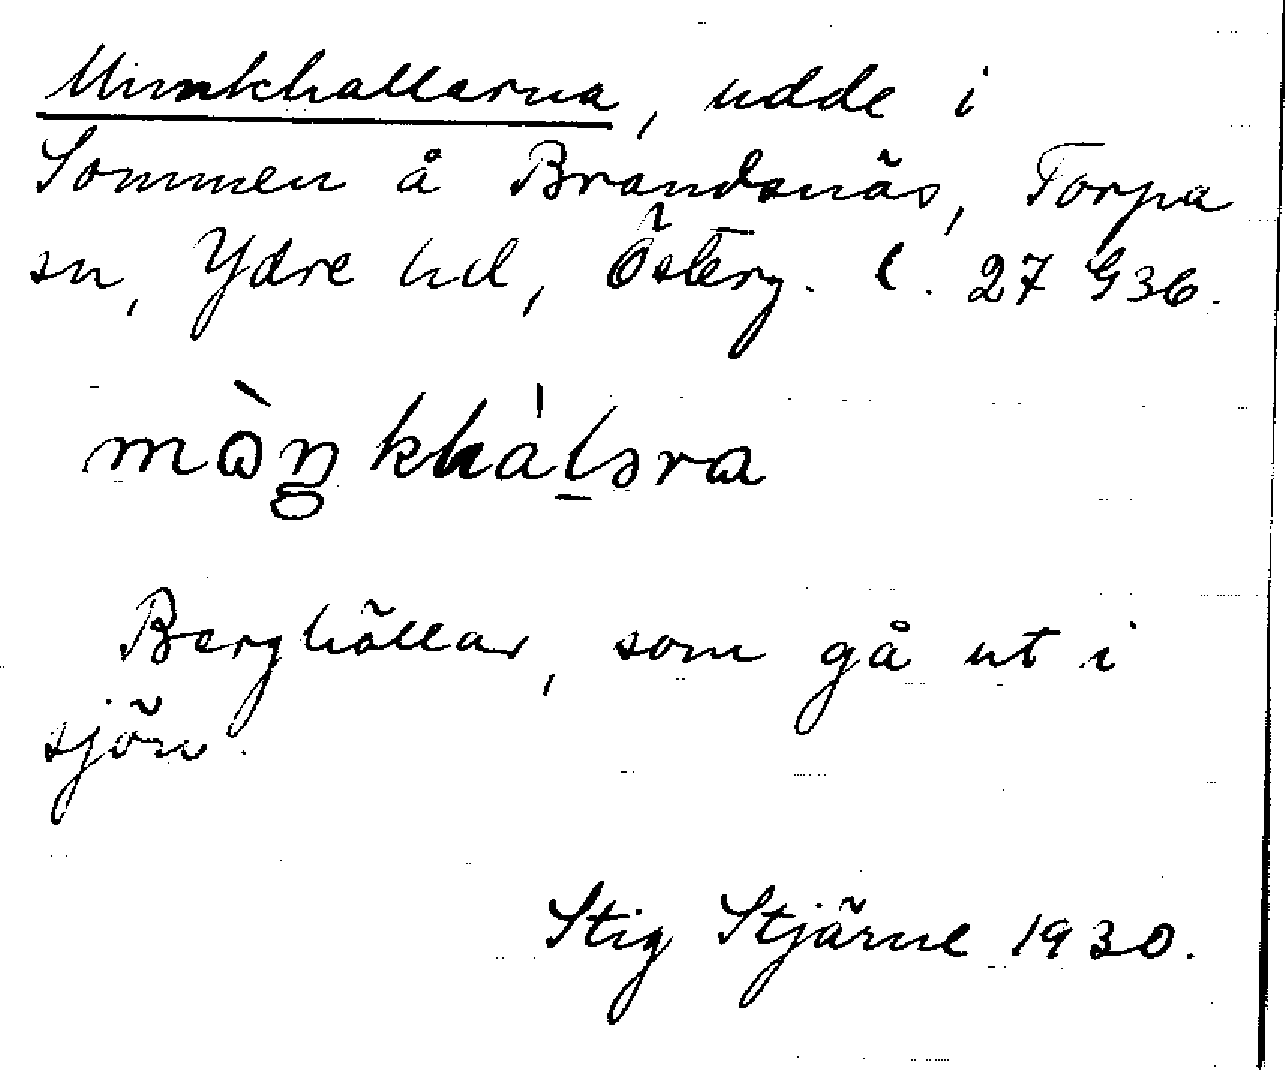 Munkhallarna, udde i
Sommen å Brandsnäs, Torpa
sn, Ydre hd, Österg. l. 27 G36.
mòŋkhálǝra
Berghällar, som gå ut i
sjön.
Stig Stjärne 1930.